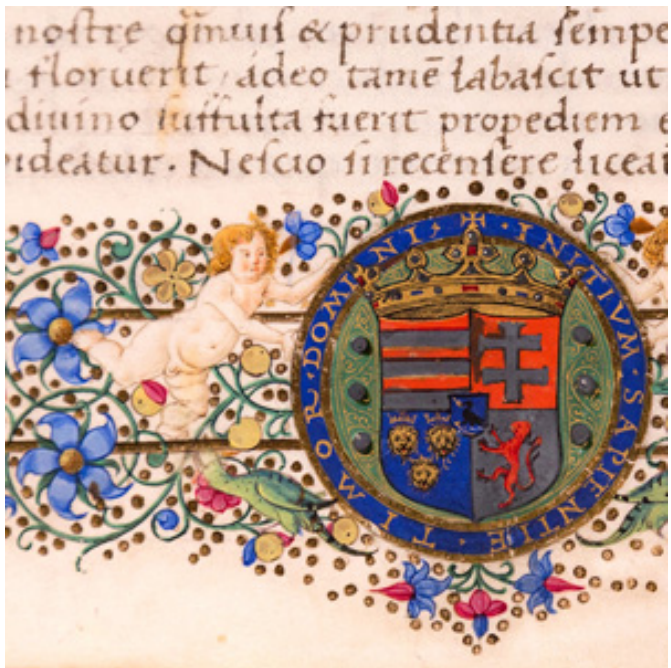 nostrę qmuis & prudentia sempe
floruerit, adeo tamē labascit ut
diuino suffulta fuerit propediem
uideatur. Nescio si recensere licea
✠ INITIVM · SAPIENTIE · TIMOR · DOMINI